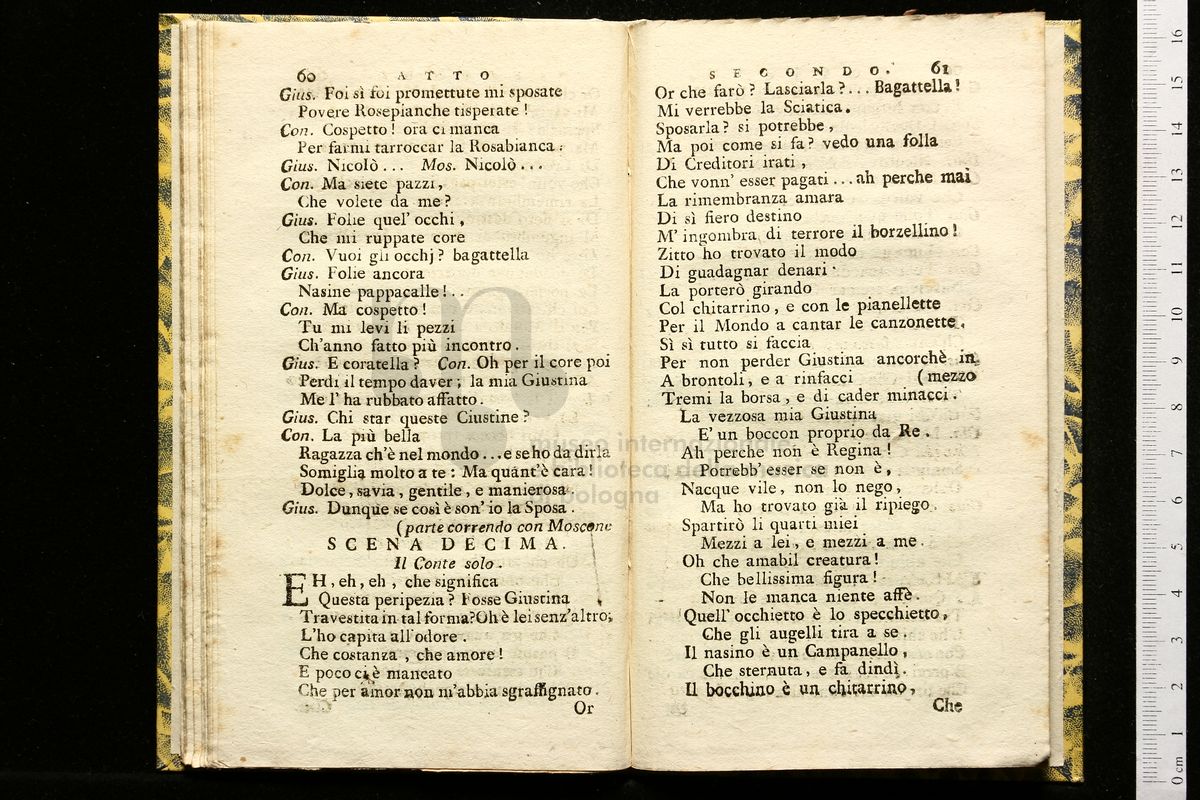 60 ATTO
Gius. Foi sì foi promettute mi sposate
Povere Rosepianche tisperate !
Con. Cospetto ! ora ci manca
Per farmi tarroccar la Rosabianca.
Gius. Nicolò ... Mos. Nicolò ...
Con. Ma siete pazzi,
Che volete da me ?
Gius. Folie quel' occhi,
Che mi ruppate core
Con. Vuoi gli occhj ? bagattella
Gius. Folie ancora
Nasine pappacalle ! . .
Con. Ma cospetto !
Tu mi levi li pezzi
Ch'anno fatto più incontro.
Gius. E coratella ? Con. Oh per il core poi
Perdi il tempo daver ; la mia Giustina
Me l' ha rubbato affatto.
Gius. Chi star queste Ciustine ?
Con. La più bella
Ragazza ch'è nel mondo ... e se ho da dirla
Somiglia molto a te : Ma quant'è cara !
Dolce, savia, gentile, e manierosa
Gius. Dunque se così è son' io la Sposa.
(parte correndo con Moscone
SCENA DECIMA.
Il Conte solo.
EH, eh, eh, che significa
Questa peripezia ? Fosse Giustina
Travestita in tal forma? Oh è lei senz'altro;
L'ho capita all'odore.
Che costanza, che amore !
E poco ci è mancato
Che per amor non m'abbia sgraffignato.
Or
SECONDO. 61
Or che farò ? Lasciarla ? ... Bagattella !
Mi verrebbe la Sciatica.
Sposarla ? si potrebbe,
Ma poi come si fa ? vedo una folla
Di Creditori irati,
Che vonn' esser pagati ... ah perche mai
La rimembranza amara
Di sì fiero destino
M' ingombra di terrore il borzellino !
Zitto ho trovato il modo
Di guadagnar denari
La porterò girando
Col chitarrino, e con le pianellette
Per il Mondo a cantar le canzonette.
Sì sì tutto si faccia
Per non perder Giustina ancorchè in
A brontoli, e a rinfacci (mezzo
Tremi la borsa, e di cader minacci.
La vezzosa mia Giustina
E' un boccon proprio da Re.
Ah perche non è Regina !
Potrebb' esser se non è,
Nacque vile, non lo nego,
Ma ho trovato già il ripiego.
Spartirò li quarti miei
Mezzi a lei, e mezzi a me.
Oh che amabil creatura !
Che bellissima figura !
Non le manca niente affè.
Quell' occhietto è lo specchietto,
Che gli augelli tira a se.
Il nasino è un Campanello,
Che sternuta, e fa dindì.
Il bocchino è un chitarrino,
Che
museo internazionale
e biblioteca della musica
di bologna
0 cm 1 2 3 4 5 6 7 8 9 10 11 12 13 14 15 16